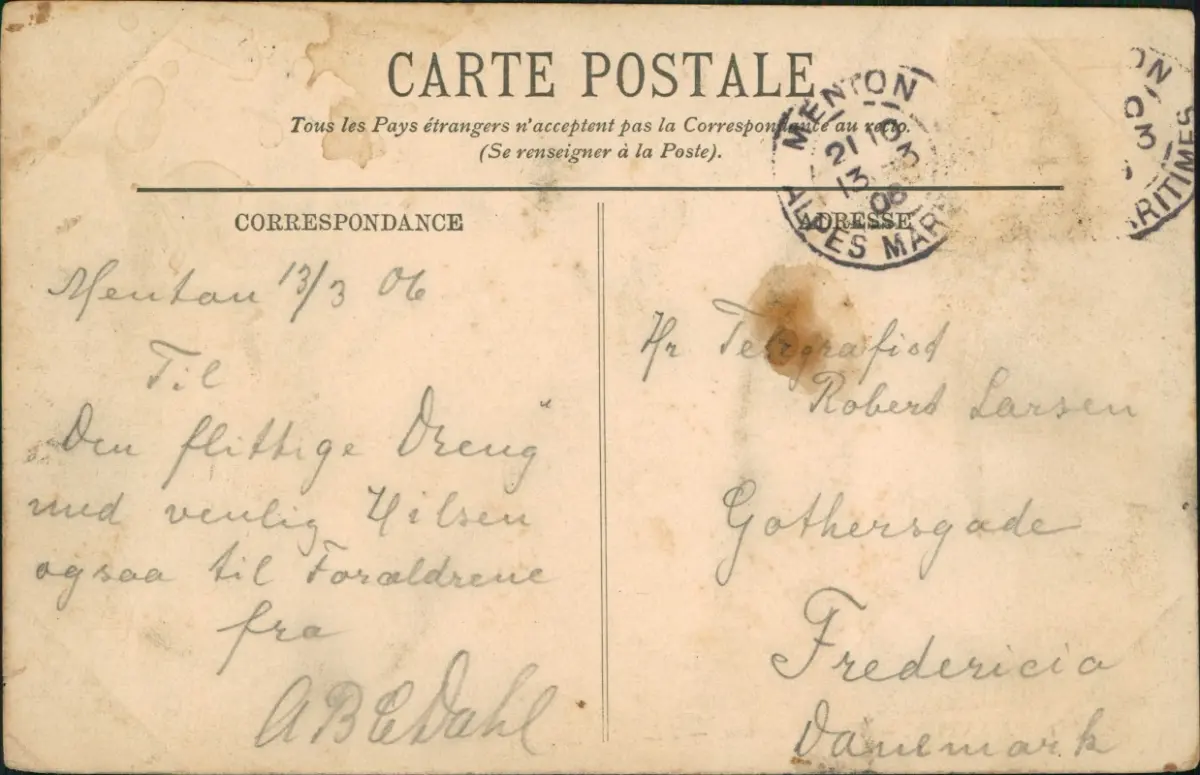 CARTE POSTALE
Tous les Pays étrangers n'acceptent pas la Correspondance au recto.
(Se renseigner à la Poste).
MENTON
21 10
13 3
06
ALPES MAR
ON
3
RITIMES
CORRESPONDANCE
Mentou 13/3 06
Til
Den flittige Dreng
med venlig Hilsen
ogsaa til Forældrene
fra
ABEDahl
ADRESSE
Hr Telegrafist
Robert Larsen
Gothersgade
Fredericia
Danemark